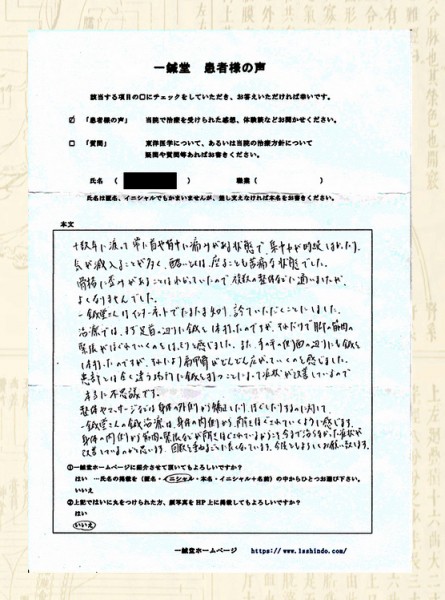 一鍼堂 患者様の声
該当する項目の□にチェックをしていただき、お答えいただければ幸いです。
☑ 「患者様の声」 当院で治療を受けられた感想、体験談などお聞かせください。
□ 「質問」 東洋医学について、あるいは当院の治療方針について
疑問や質問等あればお書きください。
氏名 ( ) 職業 ( )
氏名は匿名、イニシャルでもかまいませんが、差し支えなければ本名をお書きください。
本文
十数年に渡って常に首や背中に痛みがある状態で、集中力が持続しなかったり、
気が滅入ることが多く、酷い時には座ることも苦痛な状態でした。
骨格に歪みがあることはわかっていたので複数の整体などに通いましたが、
よくなりませんでした。
一鍼堂さんはインターネットでたまたま知り、診ていただくことにしました。
治療では、まず足首の辺りに鍼を されたのですが、それだけで肩の筋肉の
緊張がほぐれていくのをはっきりと感じました。また、手の平の側面の辺りにも鍼を
されたのですが、それにより肩甲骨がどんどん広がっていくのを感じました。
患部とは全く違う場所に鍼をすることによって症状が改善しているので
本当に不思議です。
整体やマッサージなどは身体の外側から矯正したり、ほぐしたりするのに対して
一鍼堂さんの鍼治療は、身体の内側から解きほぐされていくように感じます。
身体の内側から筋肉の緊張などが解きほぐされているからこそ、今まで治らなかった症状が
改善しているのかと思います。回数を重ねるごとに良くなっています。今後ともよろしくお願い致します。
①一鍼堂ホームページに紹介させて頂いてもよろしいですか？
はい …氏名の掲載を（匿名・イニシャル・本名・イニシャル＋名前）の中からひとつお選び下さい。
いいえ
②上記ではいに丸をつけられた方、顔写真をHP上に掲載してもよろしいですか？
はい
いいえ
一鍼堂ホームページ https://www.1sshindo.com/